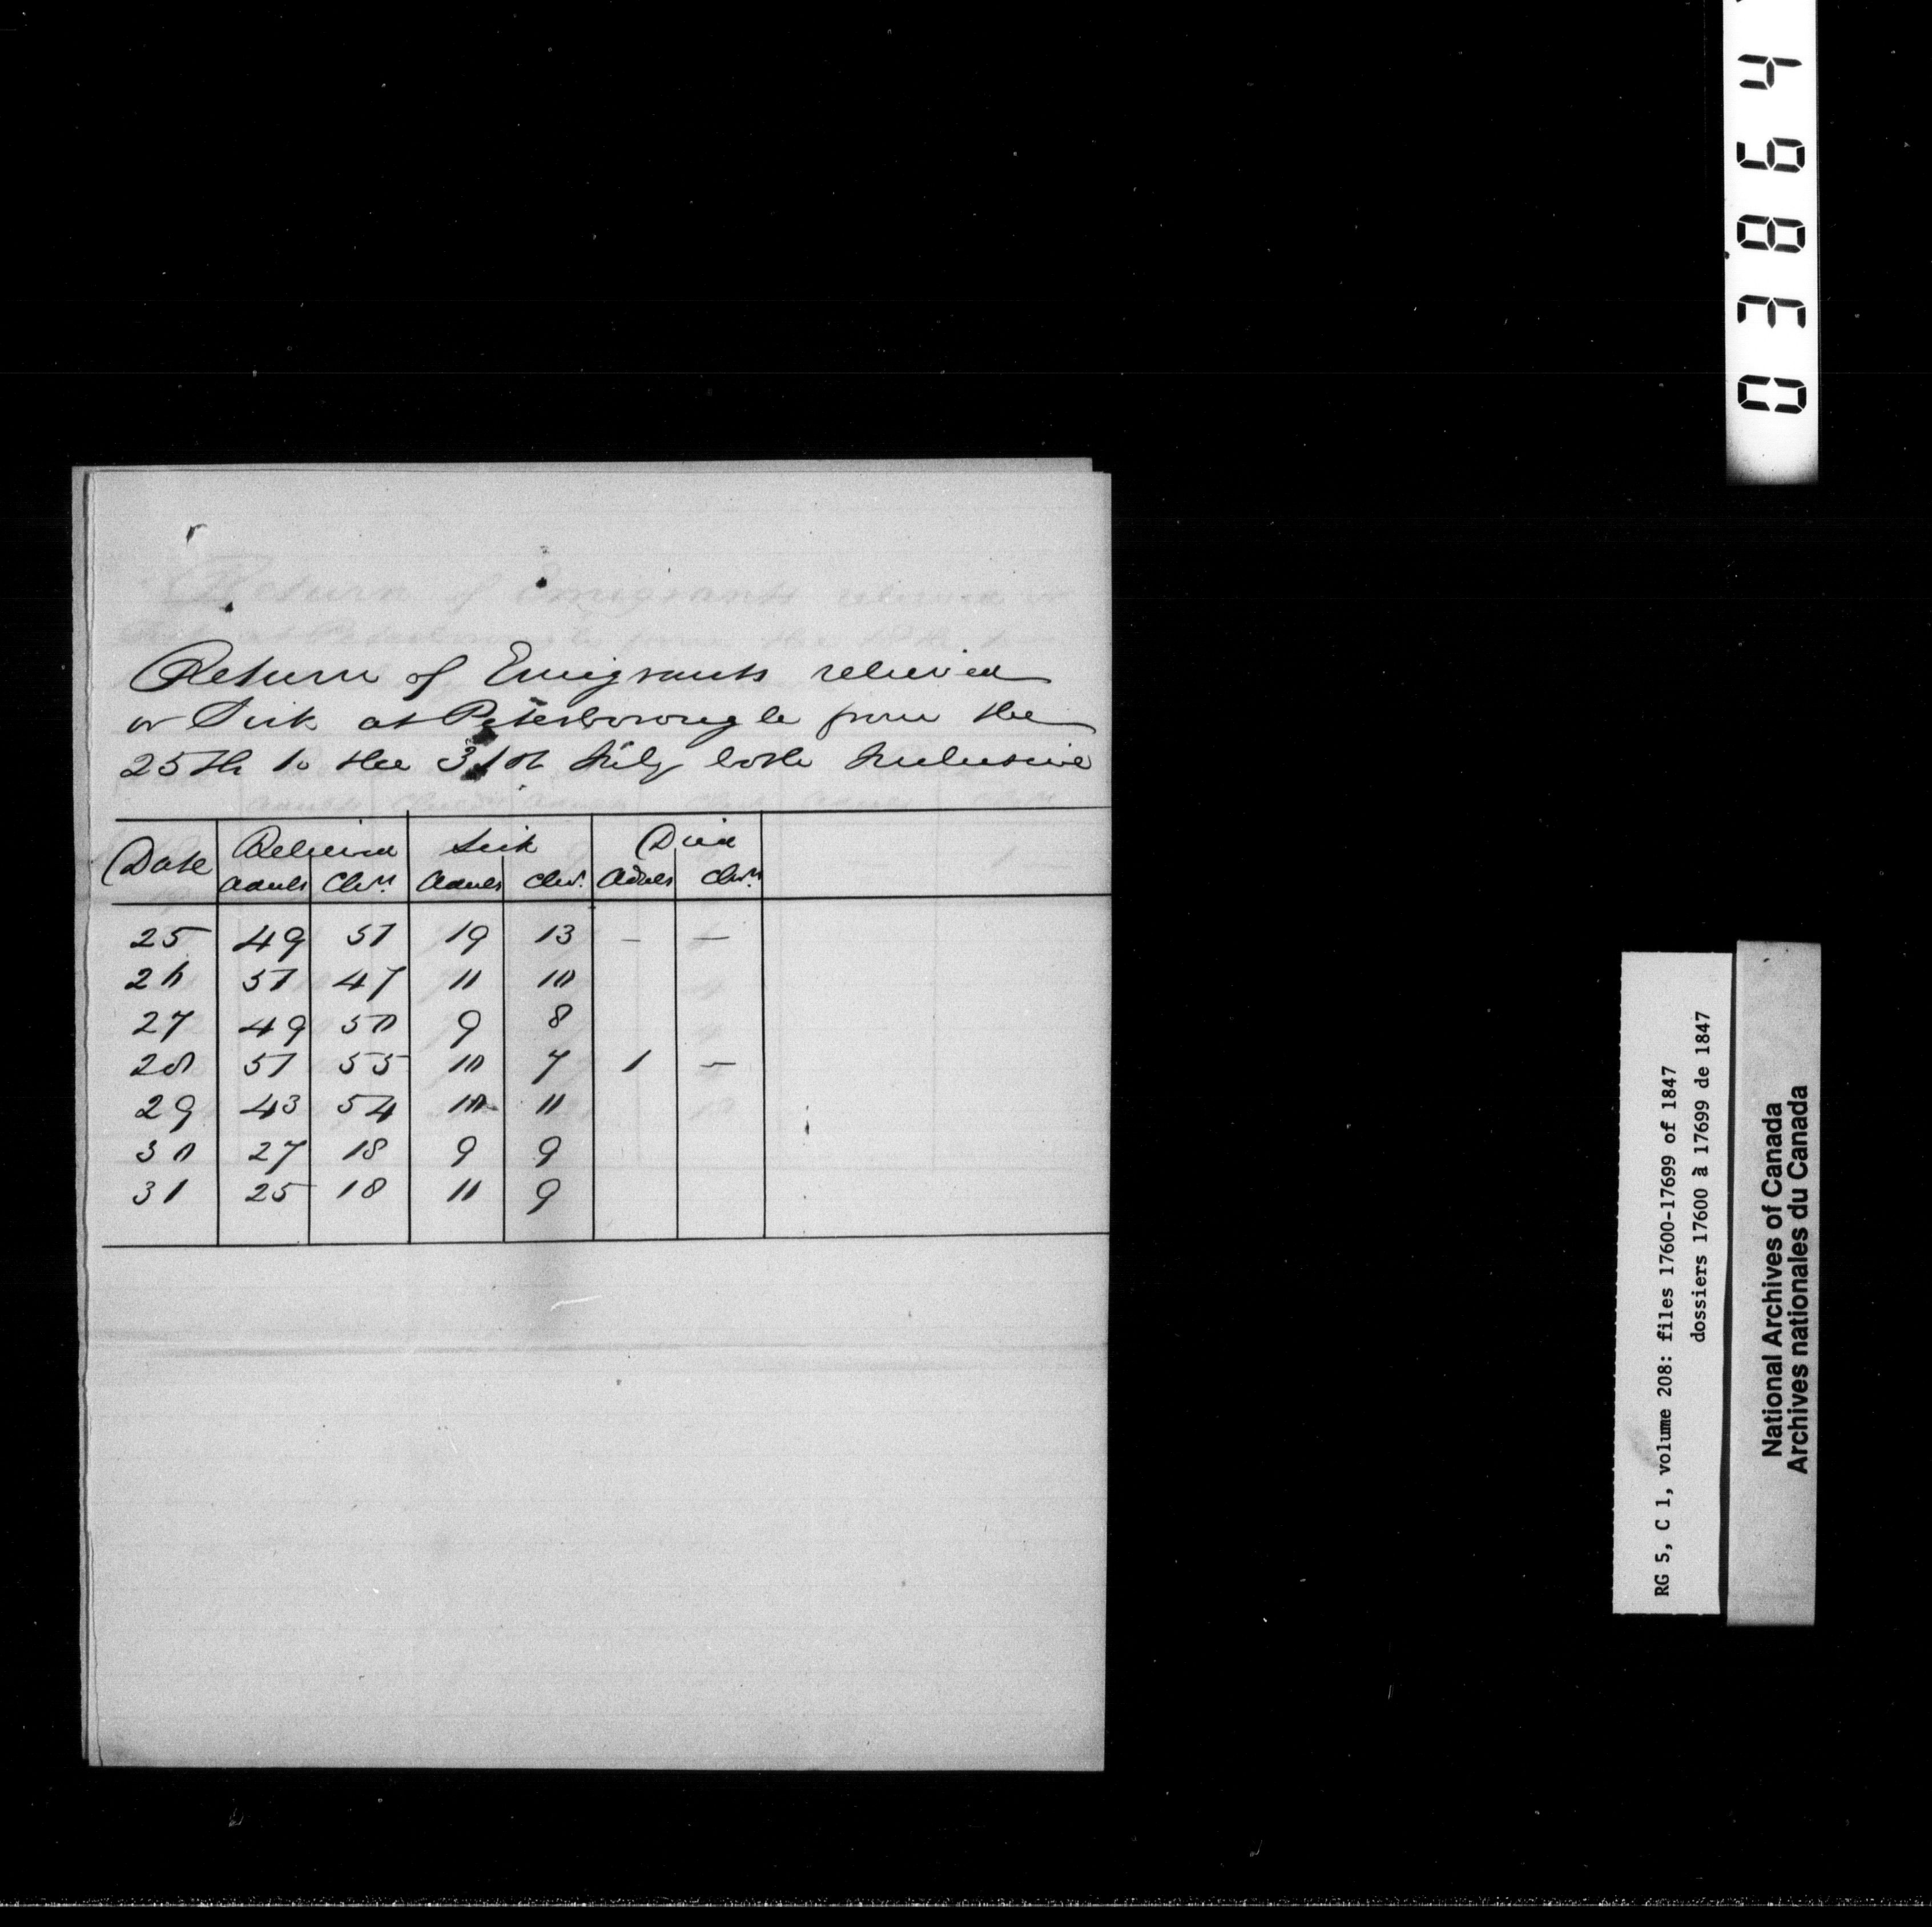 Return of Emigrants relieved
or Sick at Peterborough from the
25th to the 31st July both Inclusive
Date Relieved Sick Died
Adults Chn. Adults Chn. Adults Chn.
25 49 51 19 13 — —
26 51 47 11 10
27 49 50 9 8
28 51 55 10 7 1 —
29 43 54 10 11
30 27 18 9 9
31 25 18 11 9
03864
RG 5, C 1, volume 208: files 17600-17699 of 1847
dossiers 17600 à 17699 de 1847
National Archives of Canada
Archives nationales du Canada